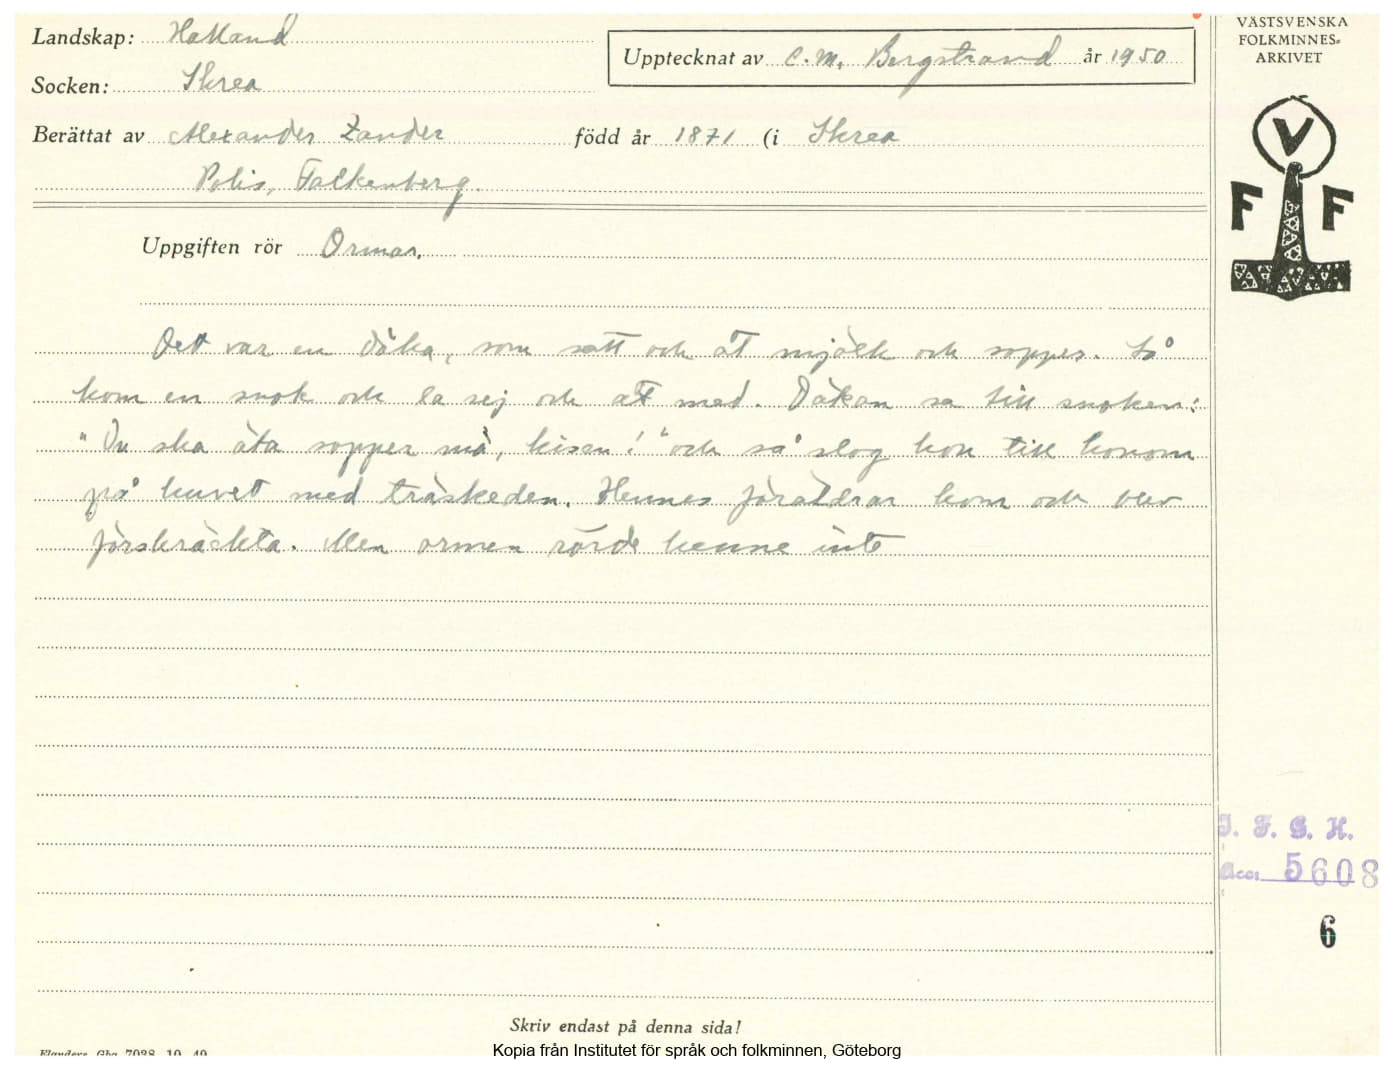 Landskap: Halland
Upptecknat av C. M. Bergstrand år 1950
Socken: Skrea
Berättat av Alexander Zander född år 1871 (i Skrea
Polis, Falkenberg.
VÄSTSVENSKA
FOLKMINNES-
ARKIVET
V
F F
Uppgiften rör Ormar.
Det var en däka, som satt och åt mjölk och sopper. Så
kom en snok och la sej och åt med. Däkan sa till snoken:
"Du ska äta sopper må, kisen!" och så slog hon till honom
på huvet med träskeden. Hennes föräldrar kom och blev
förskräckta. Men ormen rörde henne inte
I. F. G. H.
Acc. 5608
6
Skriv endast på denna sida!
Flanders Gbg 7028 10 49
Kopia från Institutet för språk och folkminnen, Göteborg